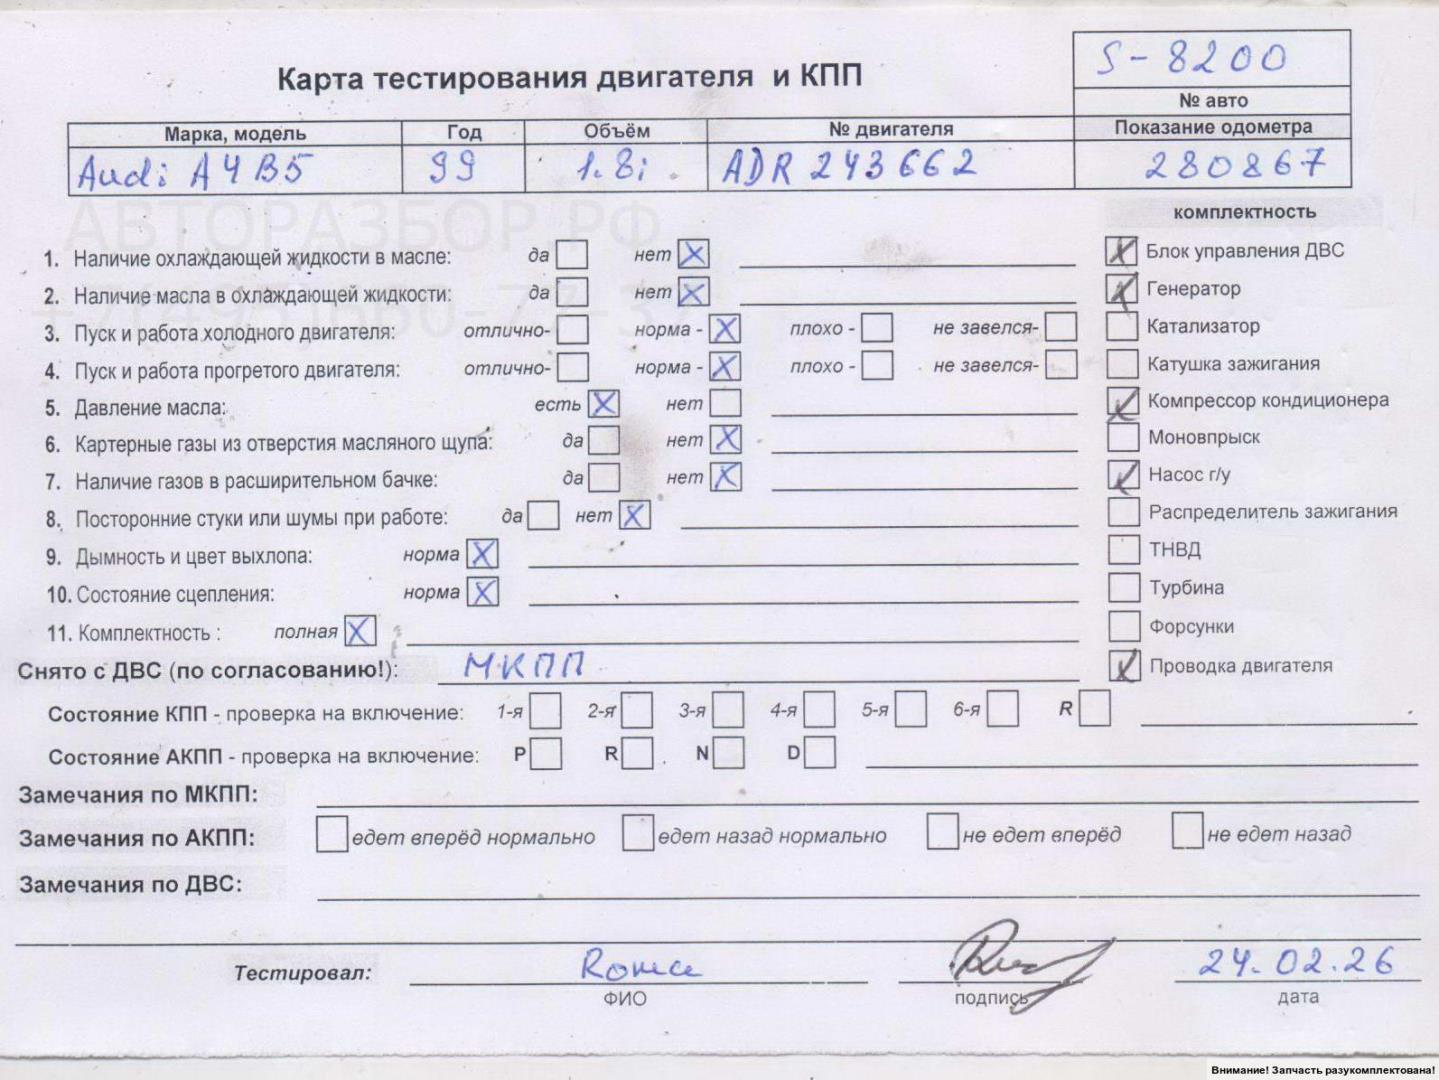 S-8200
Карта тестирования двигателя и КПП
№ авто
Марка, модель Год Объём № двигателя Показание одометра
Audi A4 B5 99 1.8i ADR 243662 280867
АВТОРАЗБОР.РФ
комплектность
1. Наличие охлаждающей жидкости в масле: да нет X Блок управления ДВС
+7(495)660-77-37
2. Наличие масла в охлаждающей жидкости: да нет X Генератор
3. Пуск и работа холодного двигателя: отлично- норма - X плохо - не завелся- Катализатор
4. Пуск и работа прогретого двигателя: отлично- норма - X плохо - не завелся- Катушка зажигания
5. Давление масла: есть X нет Компрессор кондиционера
6. Картерные газы из отверстия масляного щупа: да нет X Моновпрыск
7. Наличие газов в расширительном бачке: да нет X Насос г/у
8. Посторонние стуки или шумы при работе: да нет X Распределитель зажигания
9. Дымность и цвет выхлопа: норма X ТНВД
10. Состояние сцепления: норма X Турбина
11. Комплектность : полная X Форсунки
Снято с ДВС (по согласованию!): МКПП Проводка двигателя
Состояние КПП - проверка на включение: 1-я 2-я 3-я 4-я 5-я 6-я R
Состояние АКПП - проверка на включение: P R N D
Замечания по МКПП:
Замечания по АКПП: едет вперёд нормально едет назад нормально не едет вперёд не едет назад
Замечания по ДВС:
Тестировал: Рома 24.02.26
ФИО подпись дата
Внимание! Запчасть разукомплектована!